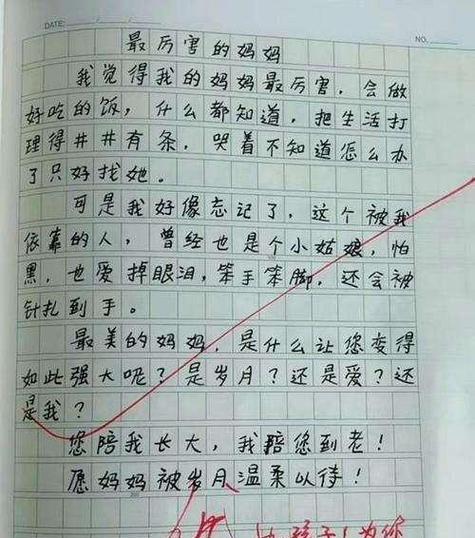 DATE:
NO.
最厉害的妈妈
我觉得我的妈妈最厉害，会做
好吃的饭，什么都知道，把生活打
理得井井有条，哭着不知道怎么办
了只好找她。
可是我好像忘记了，这个被我
依靠的人，曾经也是个小姑娘，怕
黑，也爱掉眼泪，笨手笨脚，还会被
针扎到手。
最美的妈妈，是什么让您变得
如此强大呢？是岁月？还是爱？还
是我？
您陪我长大，我陪您到老！
愿妈妈被岁月温柔以待！
孩子！为你